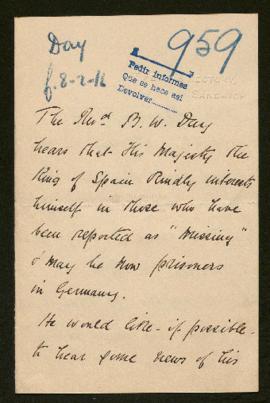 Day
959
f. 8-2-16
Pedir informes
Que se hace así
Devolver
The Revd B. W. Day
hears that His Majesty the
King of Spain kindly interests
himself in those who have
been reported as "Missing"
& may be now prisoners
in Germany.
He would like - if possible -
to hear some news of his